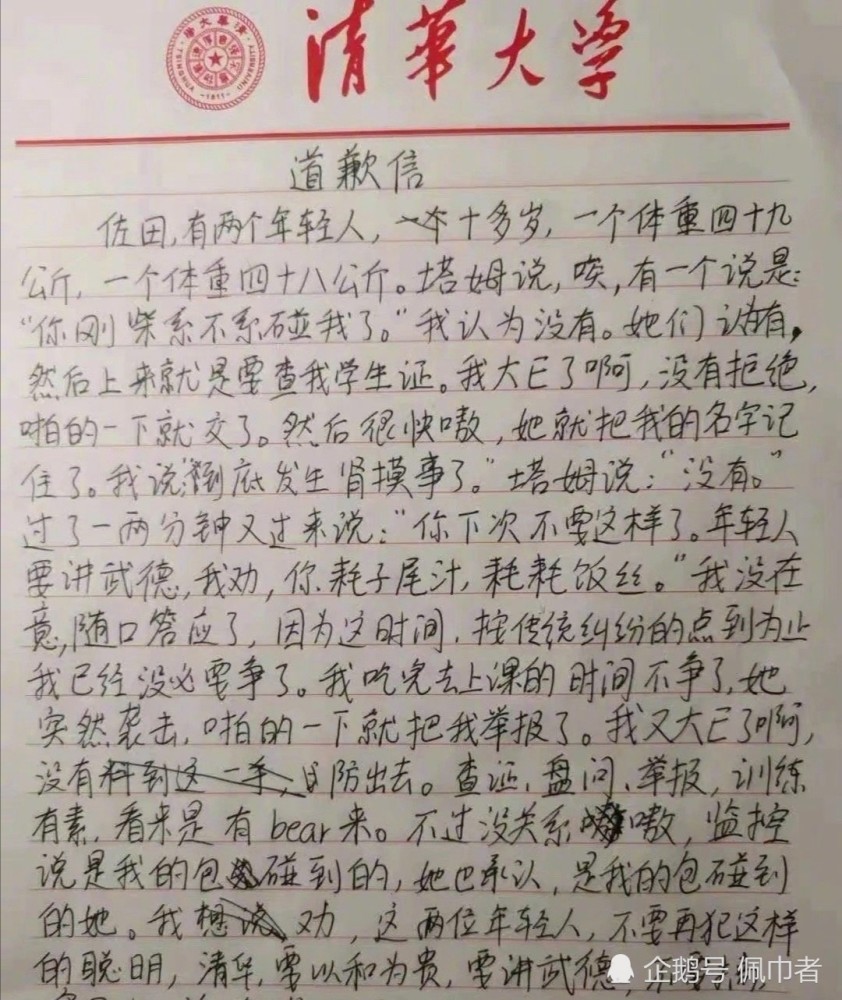 清華大学
清華大学
TSINGHUA UNIVERSITY
-1911-
道歉信
佐田,有两个年轻人,一个十多岁,一个体重四十九
公斤,一个体重四十八公斤。塔姆说,唉,有一个说是:
“你刚柴系不系碰我了。”我认为没有。她们说有,
然后上来就是要查我学生证。我大E了啊,没有拒绝,
啪的一下就交了。然后很快嗷,她就把我的名字记
住了。我说:“到底发生肾摸事了。”塔姆说:“没有。”
过了一两分钟又过来说:“你下次不要这样了。年轻人
要讲武德,我劝,你耗子尾汁,耗耗饭丝。”我没在
意,随口答应了,因为这时间,按传统纠纷的点到为止
我已经没必要争了。我吃完去上课的时间不争了,她
突然袭击,啪的一下就把我举报了。我又大E了啊,
没有料到这一手,防出去。查证、盘问、举报,训练
有素,看来是有bear来。不过没关系嗷,监控
说是我的包碰到的,她也承认,是我的包碰到
的她。我想说劝,这两位年轻人,不要再犯这样
的聪明,清华,要以和为贵,要讲武德,
企鹅号 佩巾者